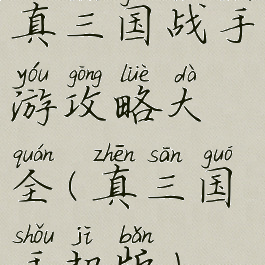 真三国战手
yóu gōng lüè dà
游攻略大
quán zhēn sān guó
全(真三国
shǒu jī bǎn
手机版)